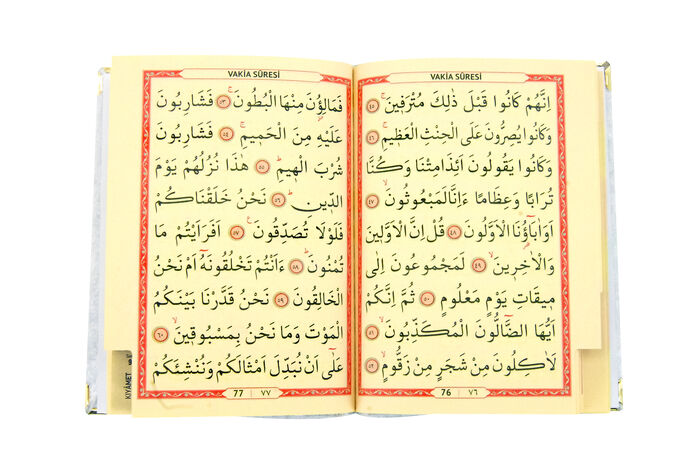 VAKİA SÛRESİ
اِنَّهُمْ كَانُوا قَبْلَ ذٰلِكَ مُتْرَفٖينَۚ ﴿٤٥﴾
وَكَانُوا يُصِرُّونَ عَلَى الْحِنْثِ الْعَظٖيمِۚ ﴿٤٦﴾
وَكَانُوا يَقُولُونَ اَئِذَا مِتْنَا وَكُنَّا
تُرَابًا وَعِظَامًا ءَاِنَّا لَمَبْعُوثُونَۙ ﴿٤٧﴾
اَوَاٰبَاؤُنَا الْاَوَّلُونَ ﴿٤٨﴾ قُلْ اِنَّ الْاَوَّلٖينَ
وَالْاٰخِرٖينَۙ ﴿٤٩﴾ لَمَجْمُوعُونَ اِلٰى
مٖيقَاتِ يَوْمٍ مَعْلُومٍ ﴿٥٠﴾ ثُمَّ اِنَّكُمْ
اَيُّهَا الضَّالُّونَ الْمُكَذِّبُونَۙ ﴿٥١﴾
لَاٰكِلُونَ مِنْ شَجَرٍ مِنْ زَقُّومٍۙ ﴿٥٢﴾
76 ٧٦
VAKİA SÛRESİ
فَمَالِؤُنَ مِنْهَا الْبُطُونَۚ ﴿٥٣﴾ فَشَارِبُونَ
عَلَيْهِ مِنَ الْحَمٖيمِۚ ﴿٥٤﴾ فَشَارِبُونَ
شُرْبَ الْهٖيمِؕ ﴿٥٥﴾ هٰذَا نُزُلُهُمْ يَوْمَ
الدّٖينِؕ ﴿٥٦﴾ نَحْنُ خَلَقْنَاكُمْ
فَلَوْلَا تُصَدِّقُونَ ﴿٥٧﴾ اَفَرَاَيْتُمْ مَا
تُمْنُونَؕ ﴿٥٨﴾ ءَاَنْتُمْ تَخْلُقُونَهُٓ اَمْ نَحْنُ
الْخَالِقُونَ ﴿٥٩﴾ نَحْنُ قَدَّرْنَا بَيْنَكُمُ
الْمَوْتَ وَمَا نَحْنُ بِمَسْبُوقٖينَۙ ﴿٦٠﴾
عَلٰٓى اَنْ نُبَدِّلَ اَمْثَالَكُمْ وَنُنْشِئَكُمْ
77 ٧٧
KIYÂMET